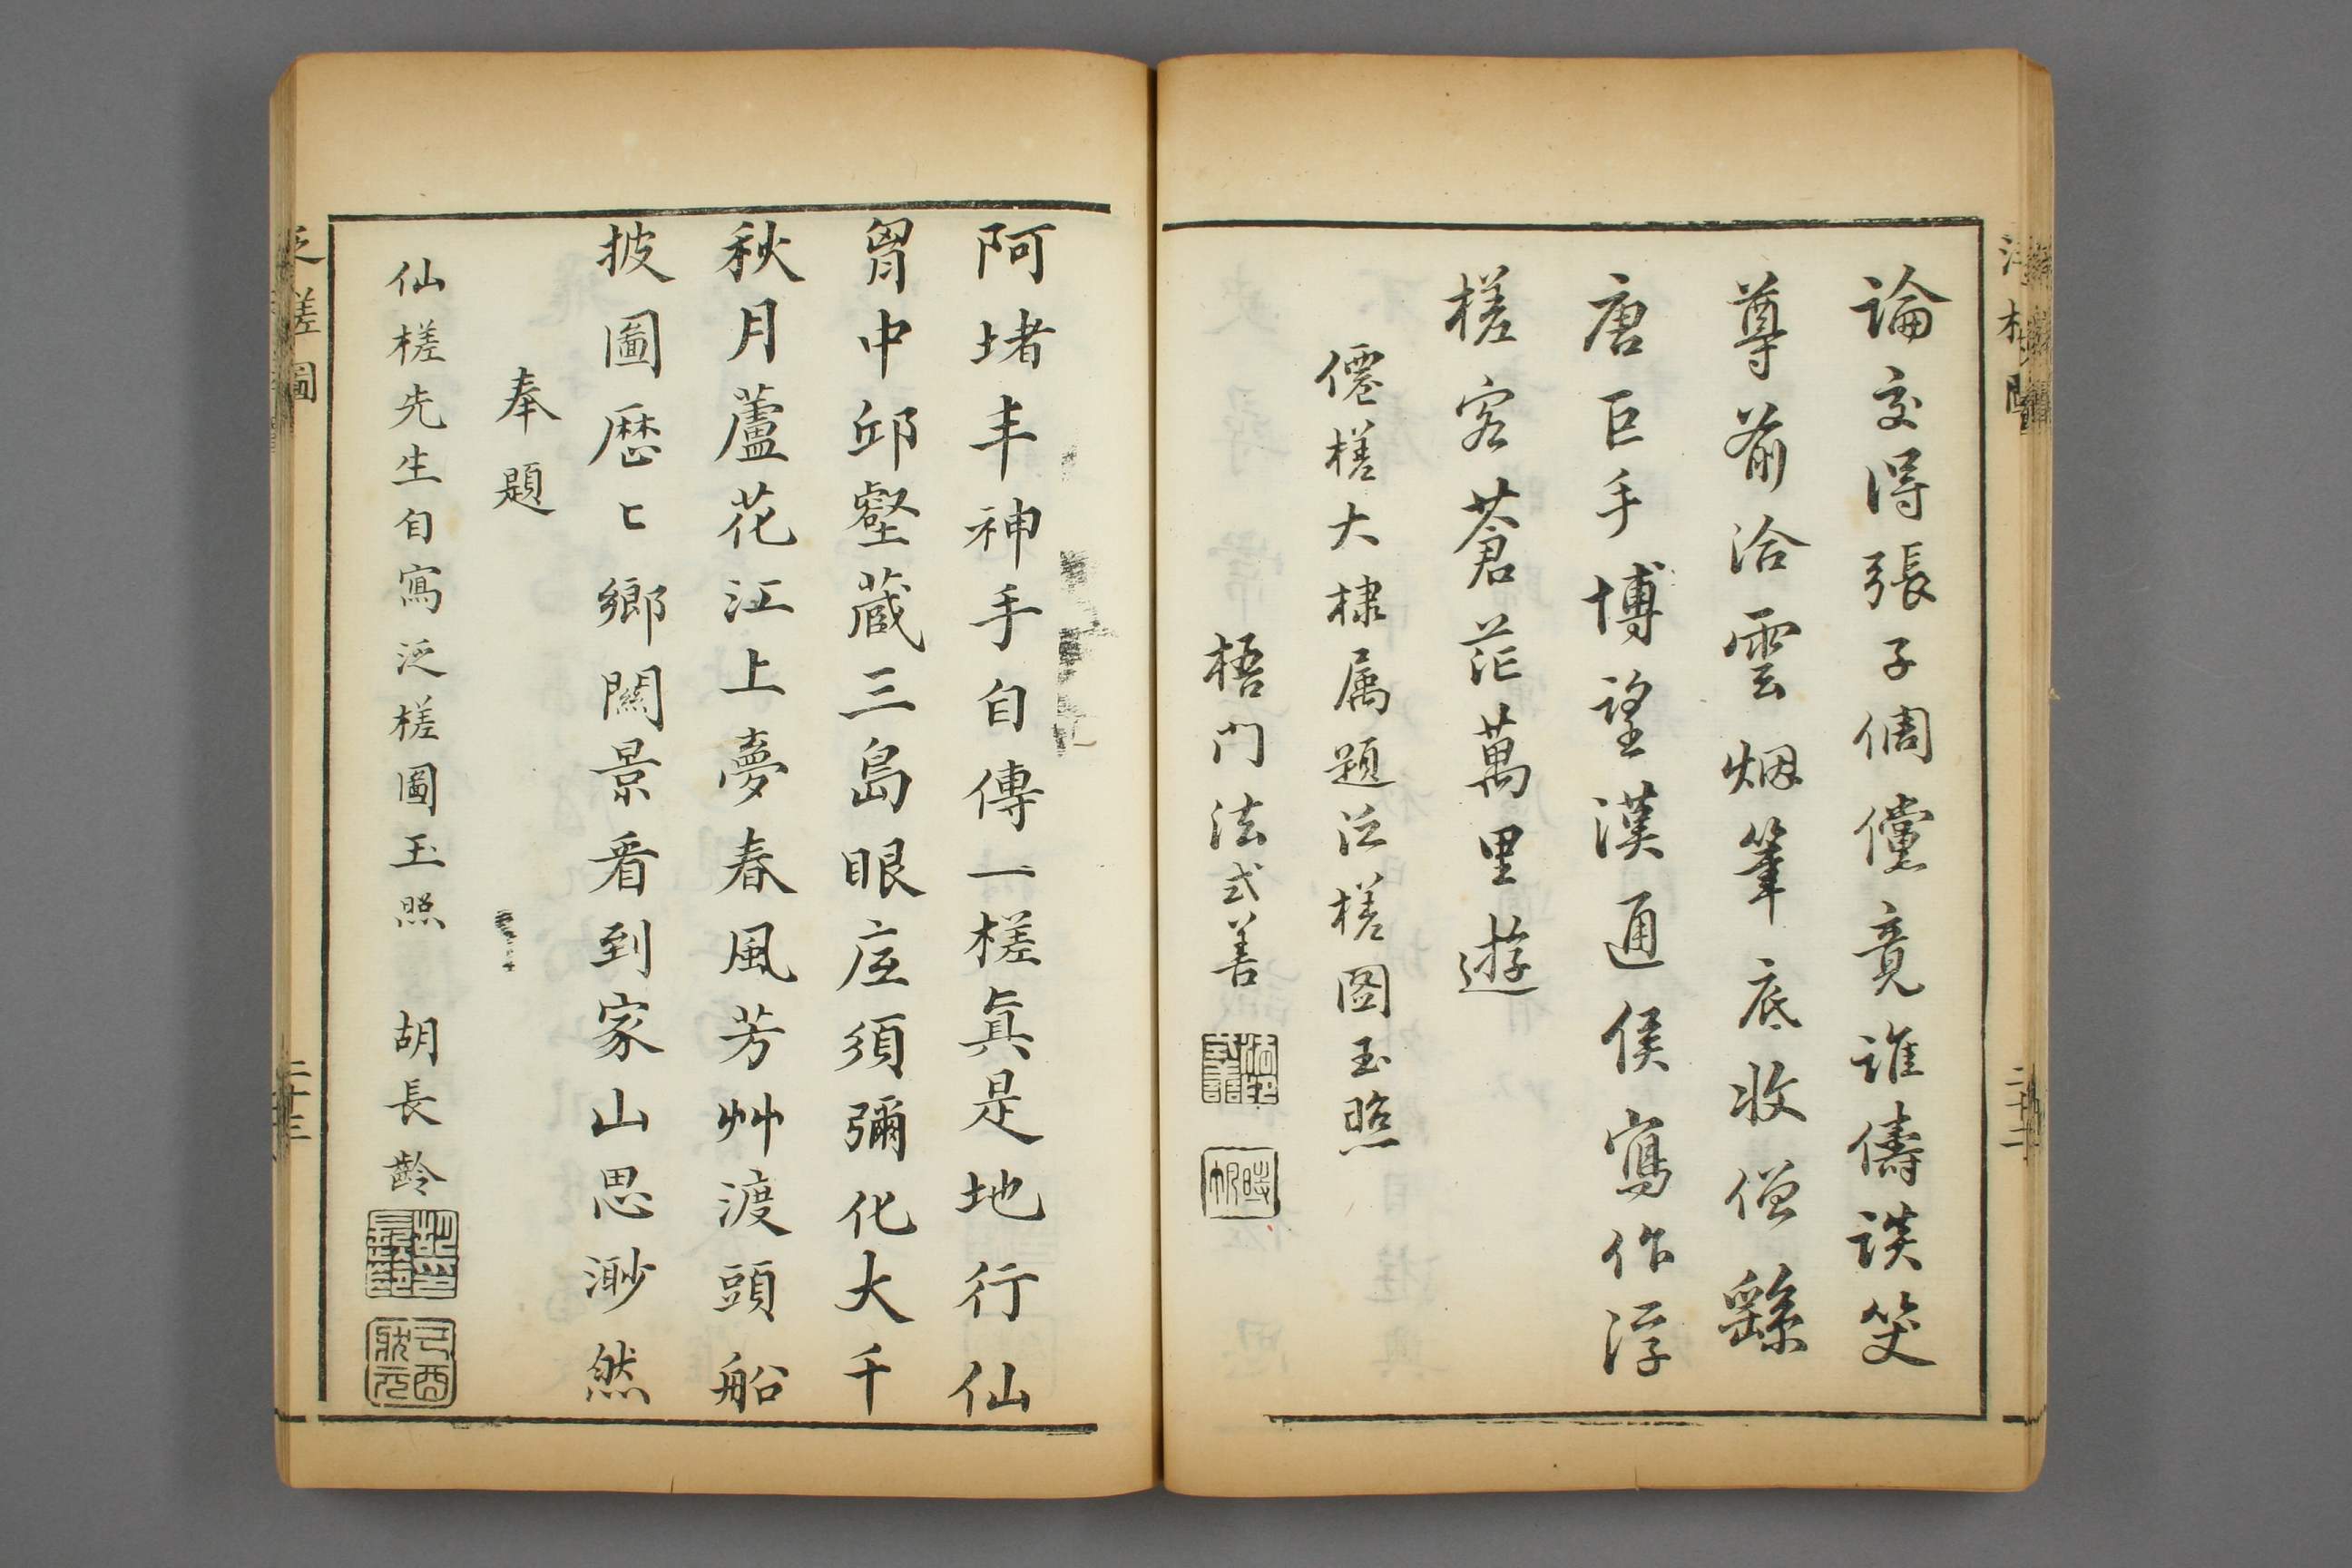 論交得張子倜儻竟誰儔談笑
尊前洽雲烟筆底收僧繇
唐巨手博望漢通侯寫作浮
槎客蒼茫萬里遊
僊槎大棣属題泛槎図玉照
梧門法式善
二十二
阿堵丰神手自傳一槎真是地行仙
胷中邱壑蔵三島眼底須彌化大千
秋月蘆花江上夢春風芳艸渡頭船
披圖歷〻鄉關景看到家山思渺然
奉題
仙槎先生自寫泛槎圖玉照 胡長齡
胡長齡印
己酉狀元
泛槎圖
二十三